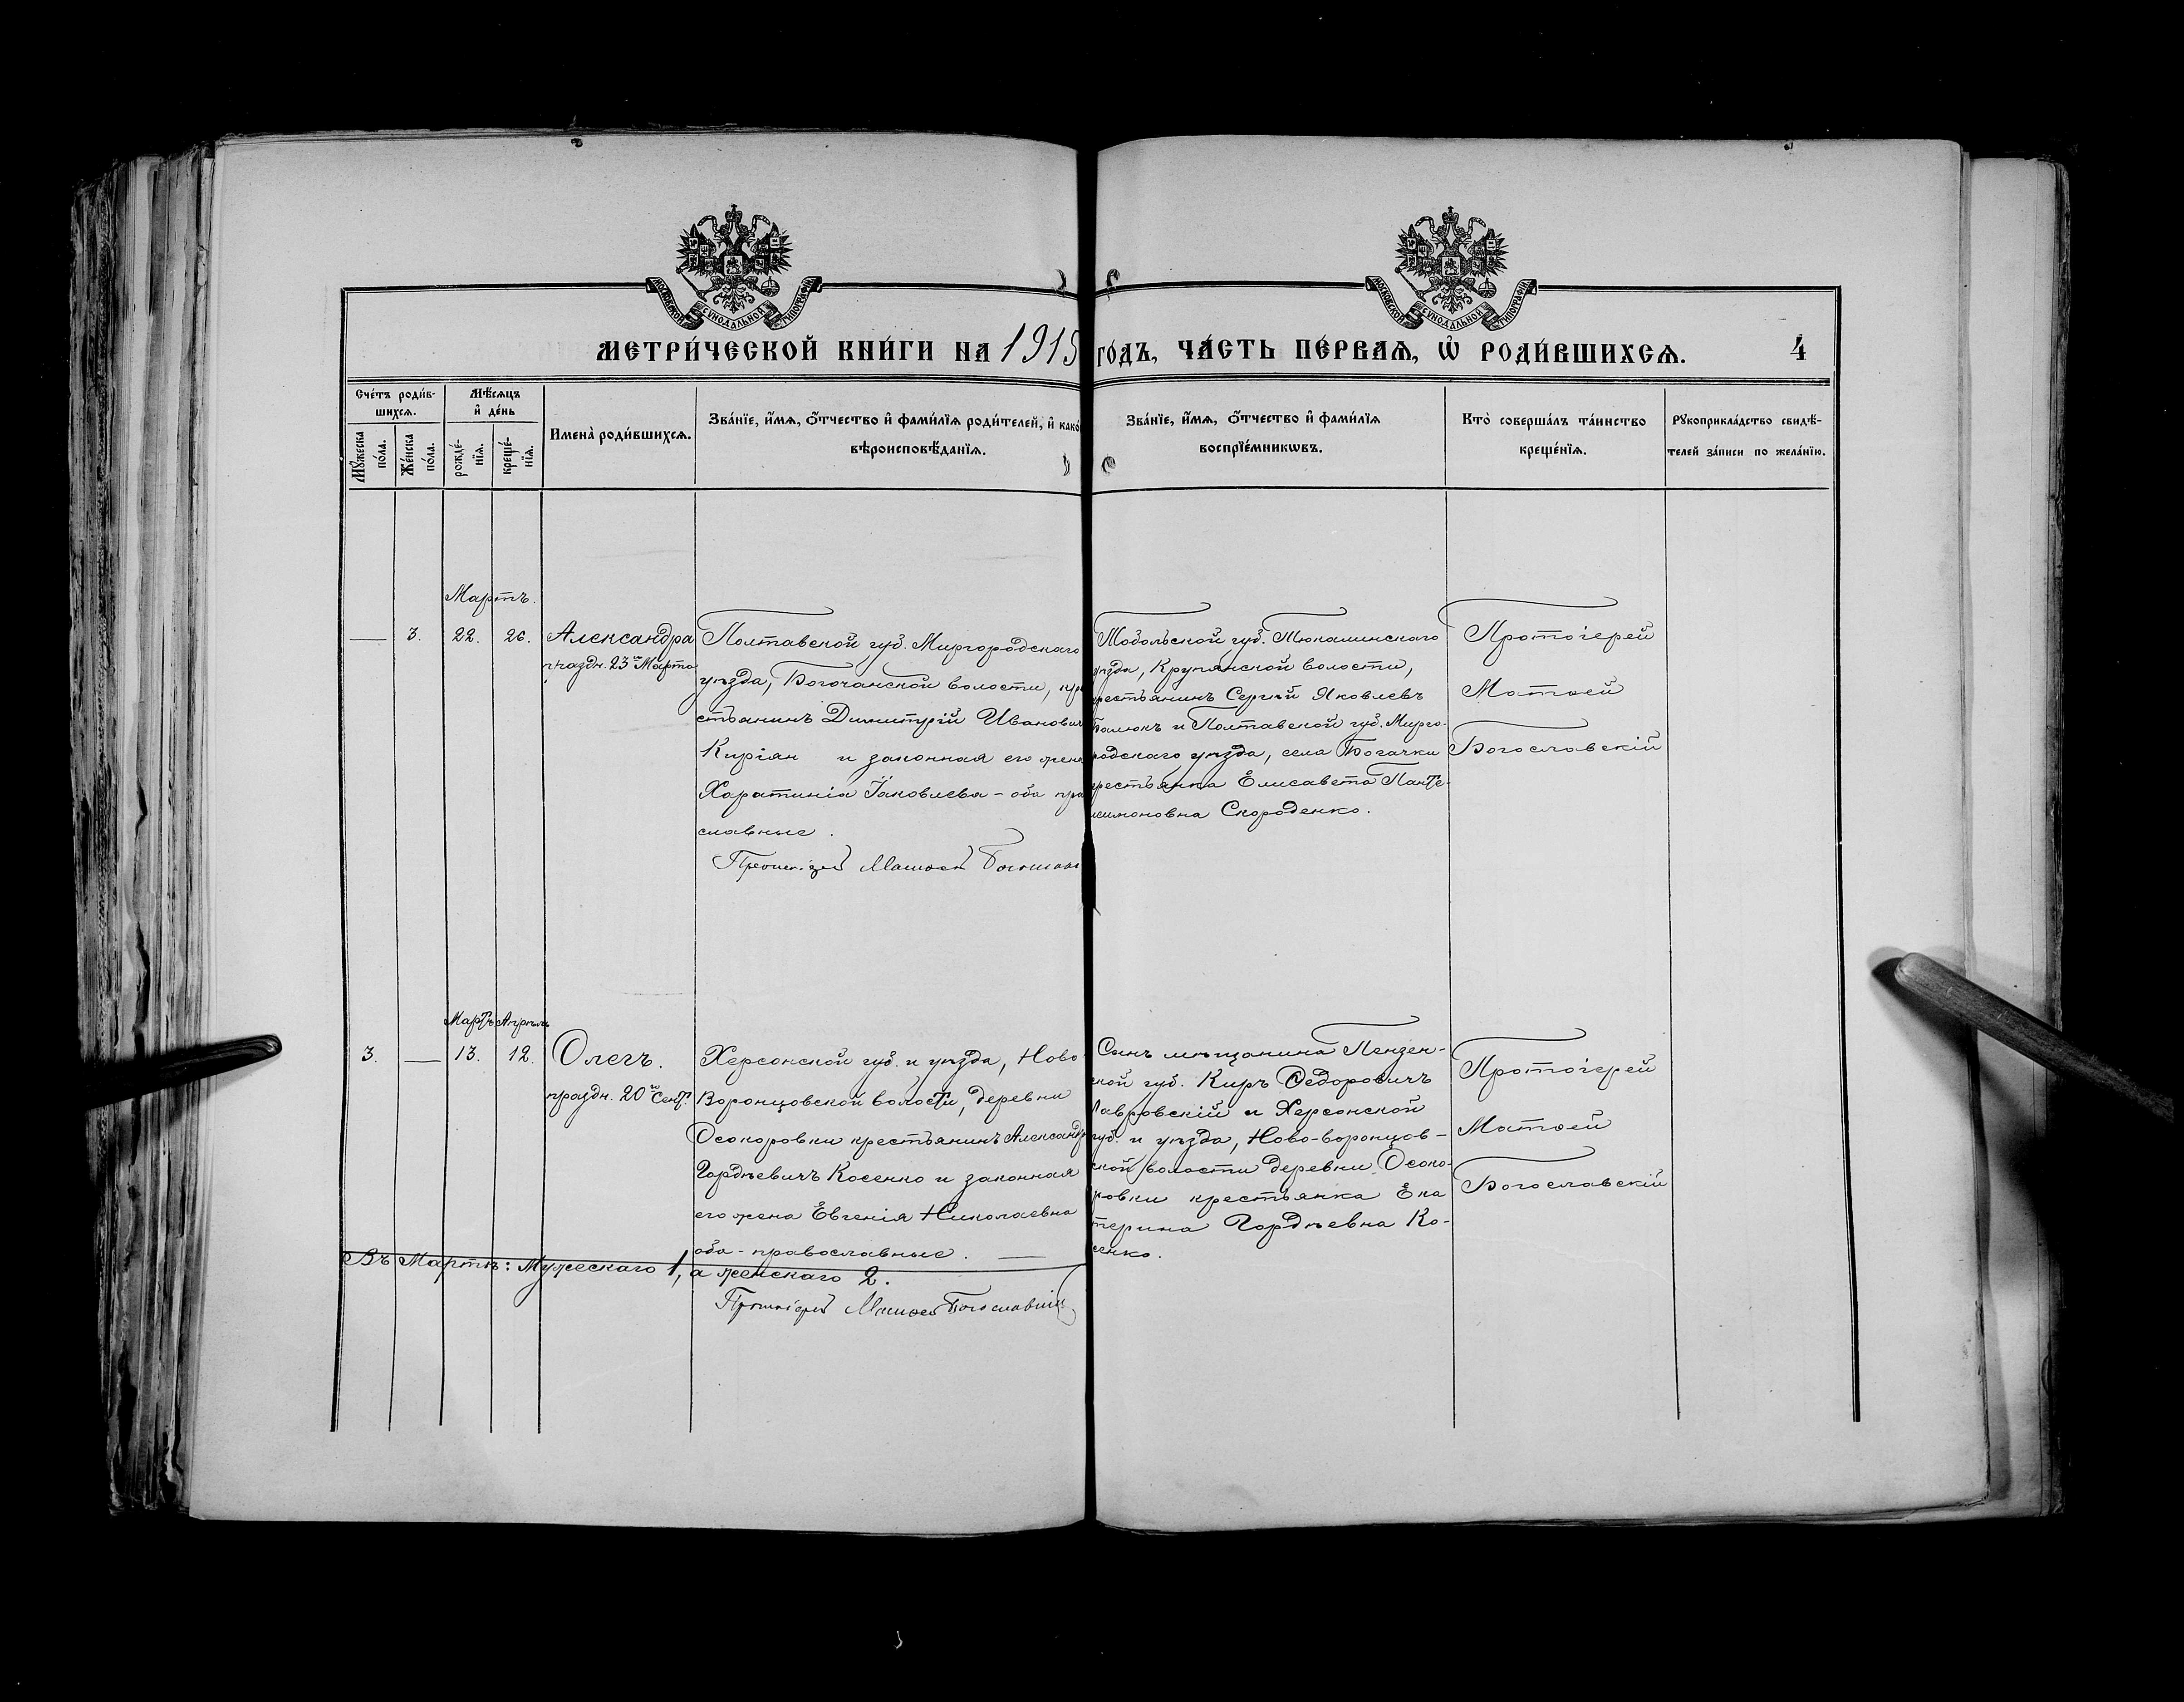 МОСКОВСКОЙ СѴНОДАЛЬНОЙ ТИПОГРАФІИ
МОСКОВСКОЙ СѴНОДАЛЬНОЙ ТИПОГРАФІИ
МЕТРИ́ЧЕСКОЙ КНИ́ГИ НА 1915 ГО́ДЪ, ЧА́СТЬ ПЕ́РВАѦ, Ѽ РОДИ́ВШИХСѦ.
4
Сче́тъ роди́в-
шихсѧ.
Мѣ́сѧцъ
и҆ де́нь
Мꙋ́жеска
по́ла.
Же́нска
по́ла.
рожде́-
нїѧ.
креще́-
нїѧ.
Имена̀ роди́вшихсѧ.
Зва́нїе, и҆́мѧ, ѻ҆́тчество и҆ фами́лїѧ роди́телей, и҆ како́
вѣроисповѣ́данїѧ.
Зва́нїе, и҆́мѧ, ѻ҆́тчество и҆ фами́лїѧ
воспрїе́мникѡвъ.
Кто̀ соверша́лъ та́инство
креще́нїѧ.
Рꙋкоприкла́дство свидѣ́-
телей за́писи по жела́нїю.
Мартъ.
— 3. 22. 26.
Александра
праздн. 23го Марта
Полтавской губ. Миргородскаго
уѣзда, Богочанской волости, кре
стьянинъ Димитрій Иванович
Киріян и законная его жена
Харатинія Іаковлева - оба пра
славные.
Протоіерей Матѳей Богослов
Тобольской губ. Тюкалинскаго
уѣзда, Крупянской волости,
рестьянинъ Сергѣй Яковлевъ
Балюкъ и Полтавской губ. Мирго-
родскаго уѣзда, села Богачки
крестьянка Елисавета Панте-
леимоновна Скороденко.
Протоіерей
Матѳей
Богославскій
Мартъ Апрѣль
3. — 13. 12.
Олегъ.
праздн. 20й Сент.
Херсонской губ. и уѣзда, Ново
Воронцовской волости, деревни
Осокоровки крестьянинъ Александр
Гордѣевичъ Косенко и законная
его жена Евгенія Николаевна
оба - православные. —
Сынъ мѣщанина Пензен-
ской губ. Киръ Ѳедоровичъ
Лавровскій и Херсонской
губ. и уѣзда, Ново-воронцов-
ской волости деревни Осоко-
ровки крестьянка Ека
терина Гордѣевна Ко-
сенко.
Протоіерей
Матѳей
Богославскій
Въ Мартѣ: Мужескаго 1, а женскаго 2.
Протоіерей Матѳей Богославскій